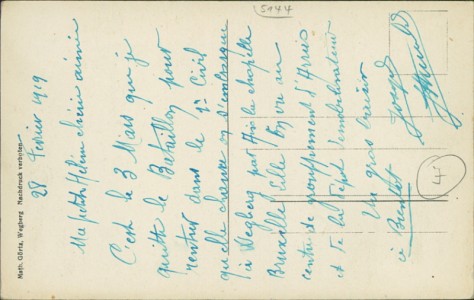 28 Fevrier 1919
Ma petite Hélène chérie aimée
C'est le 3 Mars que je
quitte le Bataillon pour
rentrer dans le Civil
quelle chance on s'embarque
à Wegberg par Aix la chapelle
Bruxelle Lille en vue au
centre de groupement d'Arras
et de là Dépot démobilisateur
Un gros baiser
à Bientot
Joseph
5944
4
Math. Görtz, Wegberg Nachdruck verboten.